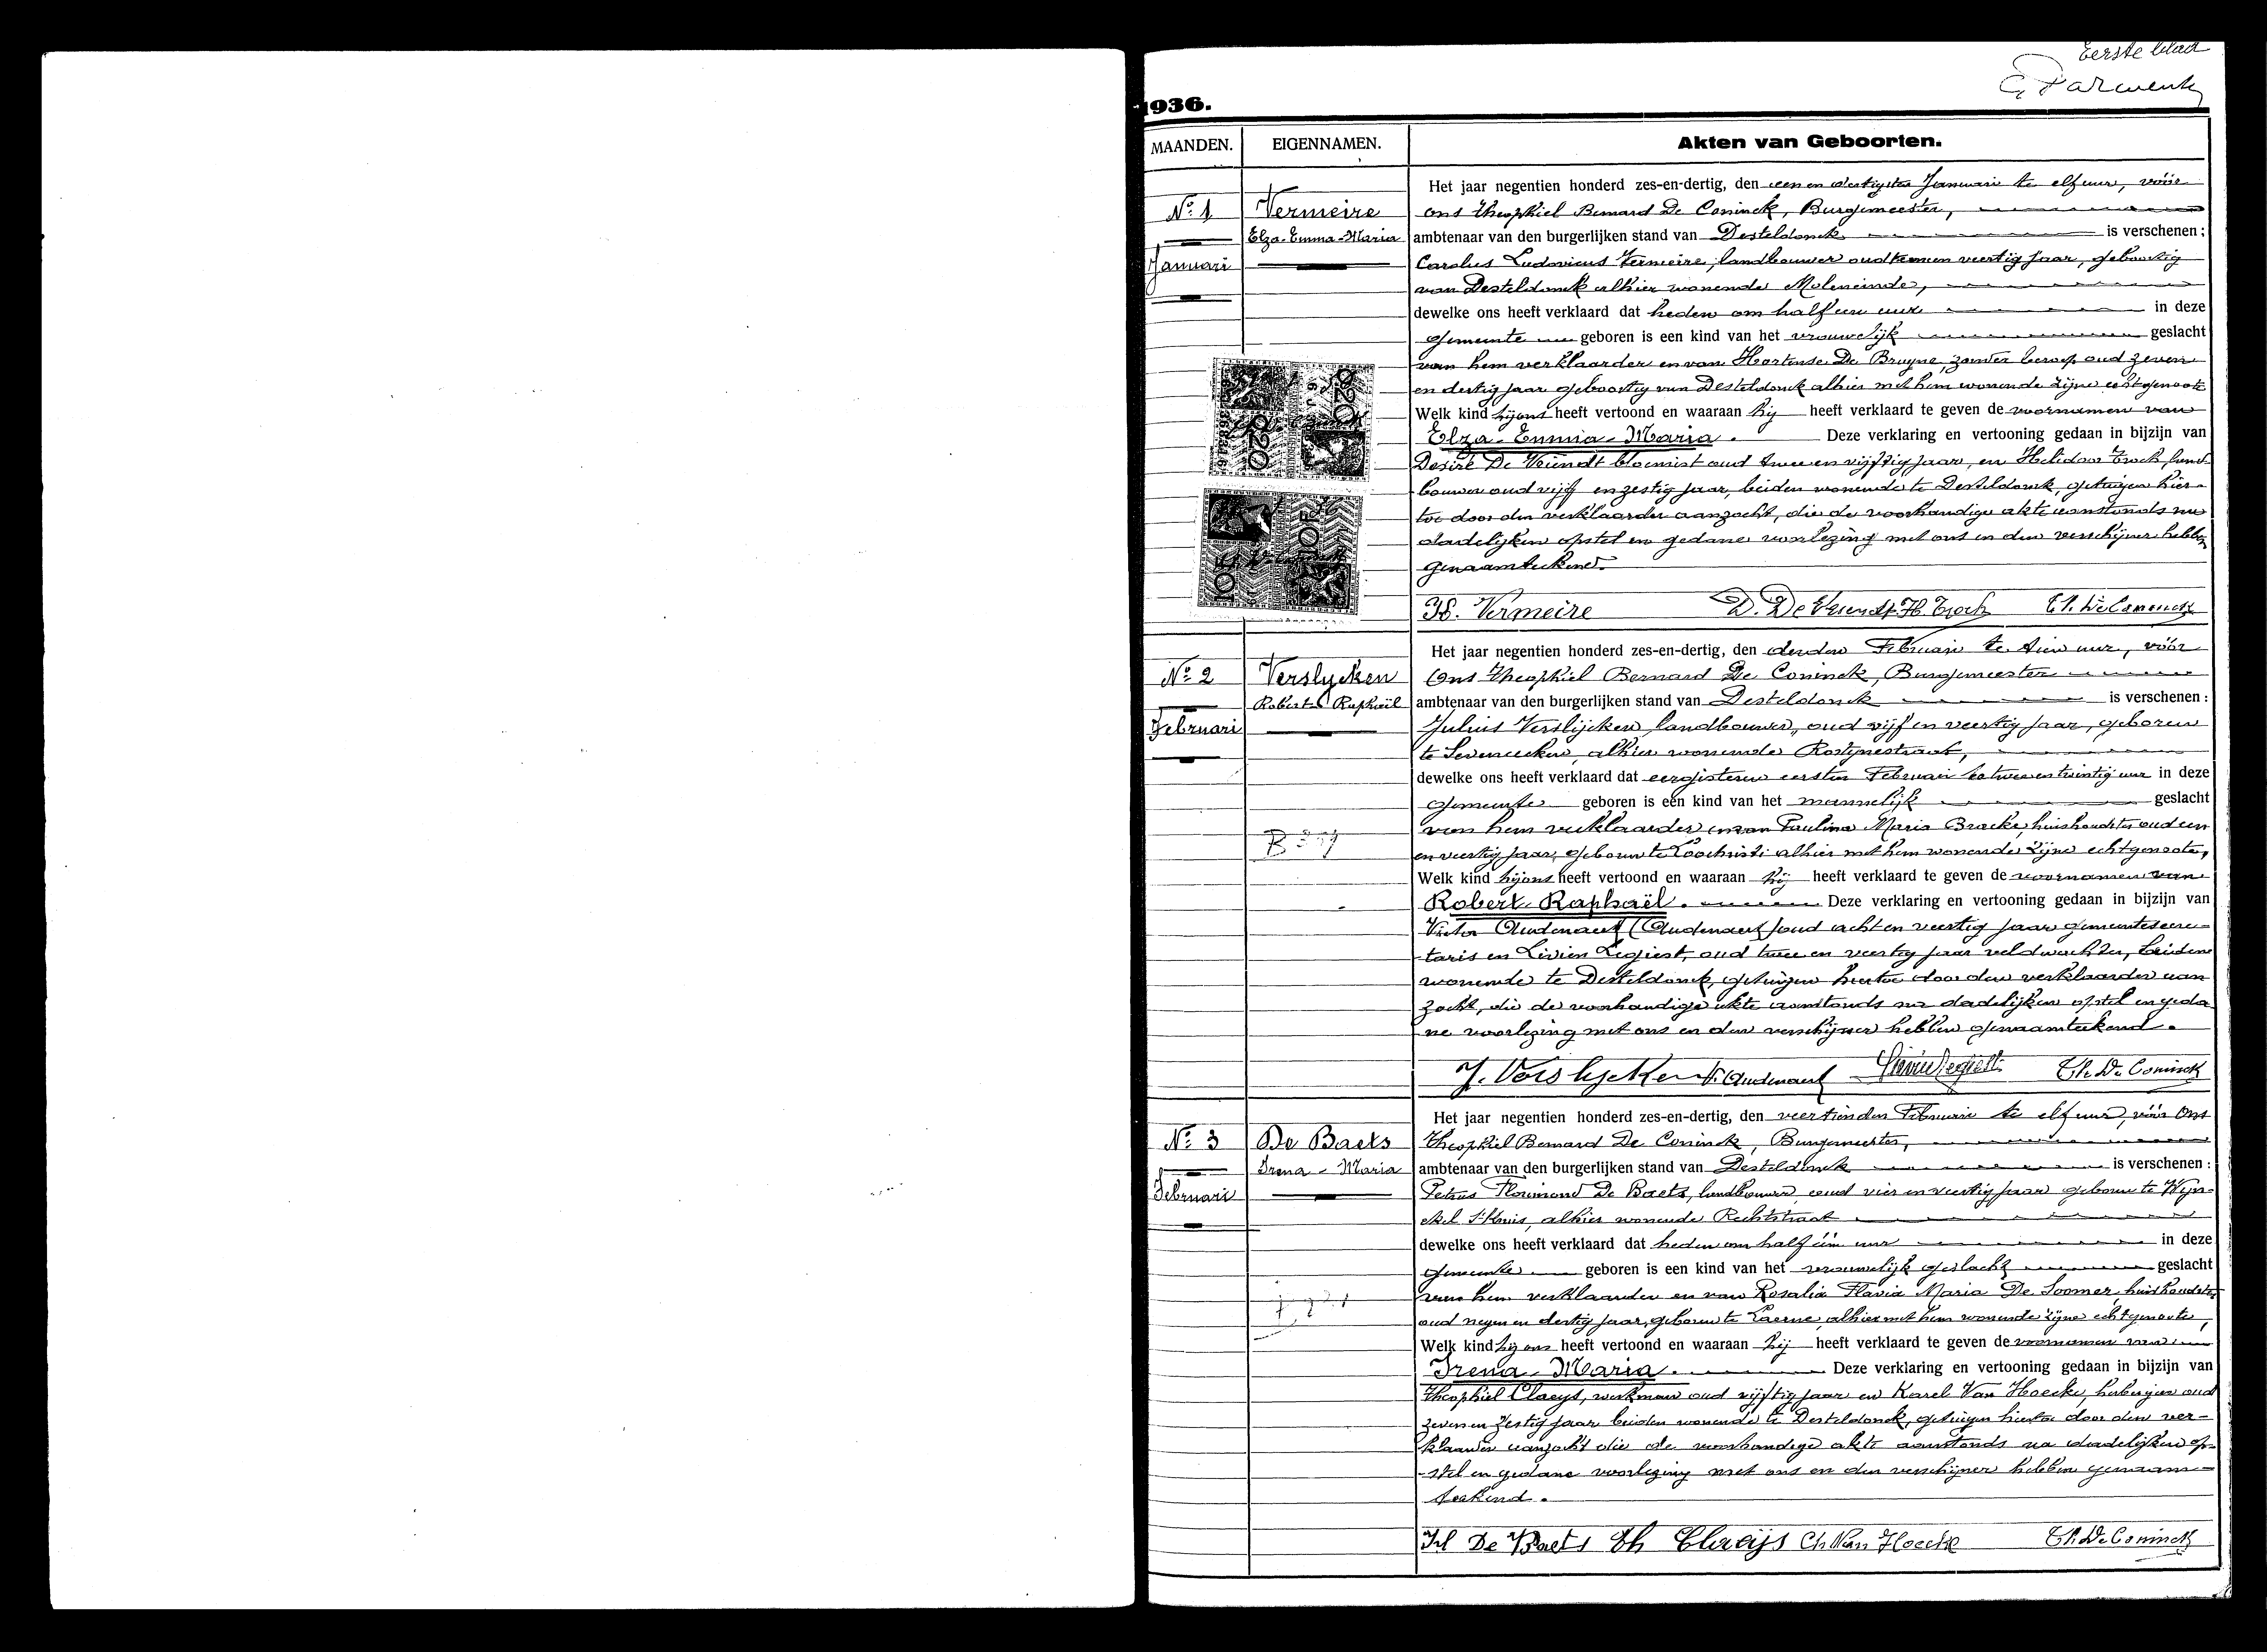 Eerste blad
1936.
MAANDEN.
EIGENNAMEN.
Akten van Geboorten.
Nº 1
Januari
Vermeire
Elza-Emma-Maria
Het jaar negentien honderd zes-en-dertig, den een en dertigsten Januari te elf ure, vóór
ons Theophiel Bernard De Coninck, Burgemeester,
ambtenaar van den burgerlijken stand van Desteldonck is verschenen :
Carolus Ludovicus Vermeire, landbouwer oud een en veertig jaar, geboortig
van Desteldonck alhier wonende Moleneinde,
dewelke ons heeft verklaard dat heden om half een ure in deze
gemeente geboren is een kind van het vrouwelijk geslacht
van hem verklaarder en van Hortense De Bruyne, zonder beroep oud zeven
en dertig jaar geboortig van Desteldonck alhier met hem wonende zijne echtgenoote
Welk kind hij ons heeft vertoond en waaraan hij heeft verklaard te geven de voornamen van
Elza-Emma-Maria. Deze verklaring en vertooning gedaan in bijzijn van
Desiré De Vriendt bloemist oud twee en vijftig jaar, en Heliodoor Troch, land-
bouwer oud vijf en zestig jaar, beiden wonende te Desteldonck, getuigen hier-
toe door den verklaarder aanzocht, die de voorhandige akte aanstonds na
dadelijken opstel en gedane voorlezing met ons en den verschijner hebben
genaamteekend.
Vermeire D. De Vriendt H. Troch Th. De Coninck
Nº 2
Februari
Verslycken
Robert Raphaël
Het jaar negentien honderd zes-en-dertig, den derden Februari te tien ure, vóór
Ons Theophiel Bernard De Coninck, Burgemeester
ambtenaar van den burgerlijken stand van Desteldonck is verschenen :
Julius Verslijcken, landbouwer, oud vijf en veertig jaar, geboren
te Seveneecken, alhier wonende Rostijnestraat,
dewelke ons heeft verklaard dat eergisteren eersten Februari te twee en twintig ure in deze
gemeente geboren is een kind van het mannelijk geslacht
van hem verklaarder en van Paulina Maria Bracke, huishoudster oud een
en veertig jaar, geboren te Loochristi alhier met hem wonende zijne echtgenoote,
Welk kind hij ons heeft vertoond en waaraan hij heeft verklaard te geven de voornamen van
Robert Raphaël. Deze verklaring en vertooning gedaan in bijzijn van
Victor Audenaert (Audenaert) oud acht en veertig jaar gemeentesecre-
taris en Livien Legiest, oud twee en veertig jaar veldwachter, beiden
wonende te Desteldonck, getuigen hiertoe door den verklaarder aan-
zocht, die de voorhandige akte aanstonds na dadelijken opstel en geda-
ne voorlezing met ons en den verschijner hebben genaamteekend.
J. Verslycken V. Audenaert Livien Legiest Th. De Coninck
Nº 3
Februari
De Baets
Irena-Maria
Het jaar negentien honderd zes-en-dertig, den veertienden Februari te elf ure, vóór Ons
Theophiel Bernard De Coninck, Burgemeester,
ambtenaar van den burgerlijken stand van Desteldonck is verschenen :
Petrus Florimond De Baets, landbouwer, oud vier en veertig jaar geboren te Wyn-
ckel St Kruis, alhier wonende Rechtstraat
dewelke ons heeft verklaard dat heden om half één ure in deze
gemeente geboren is een kind van het vrouwelijk geslacht geslacht
van hem verklaarder en van Rosalia Flavia Maria De Soomer, huishoudster
oud negen en dertig jaar, geboren te Laerne, alhier met hem wonende zijne echtgenoote,
Welk kind hij ons heeft vertoond en waaraan hij heeft verklaard te geven de voornamen van
Irena-Maria. Deze verklaring en vertooning gedaan in bijzijn van
Theophiel Claeys, werkman oud vijftig jaar en Karel Van Hoecke, herbergier oud
zeven en zestig jaar beiden wonende te Desteldonck, getuigen hiertoe door den ver-
klaarder aanzocht die de voorhandige akte aanstonds na dadelijken op-
stel en gedane voorlezing met ons en den verschijner hebben genaam-
teekend.
De Baets Th Claeijs Ch Van Hoecke Th. De Coninck